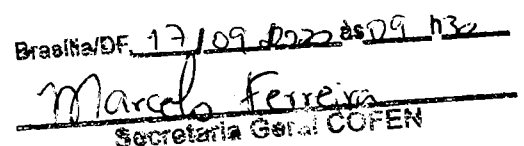 Brasília/DF, 17/09/2020 às 09 h30
Marcelo Ferreira
Secretaria Geral COFEN